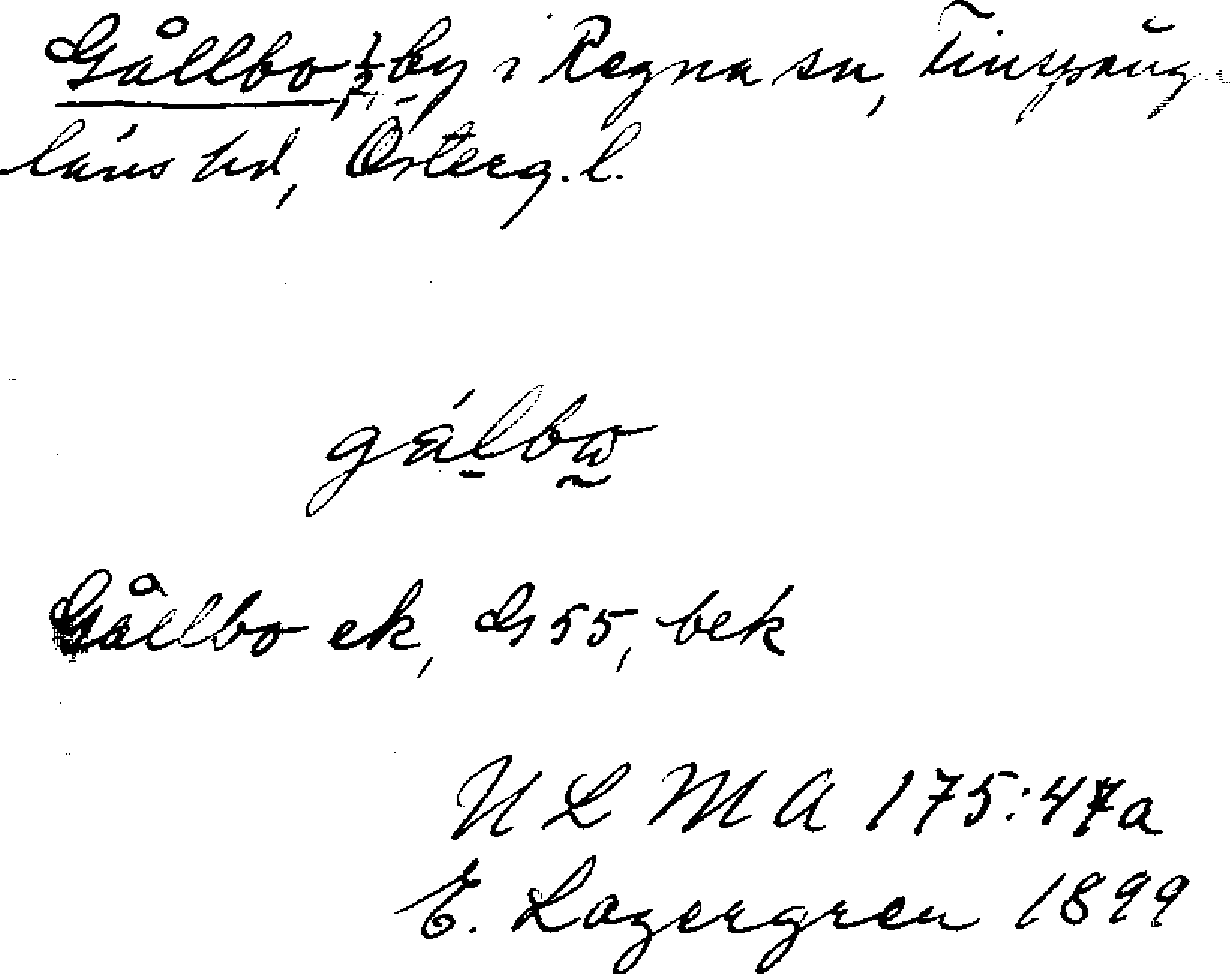 Gållbo, by i Regna sn, Finspång-
läns hd, Österg. l.
gálbω
Gållbo ek, G 55, bek
ULMA 175:47a
E. Lagergren 1899